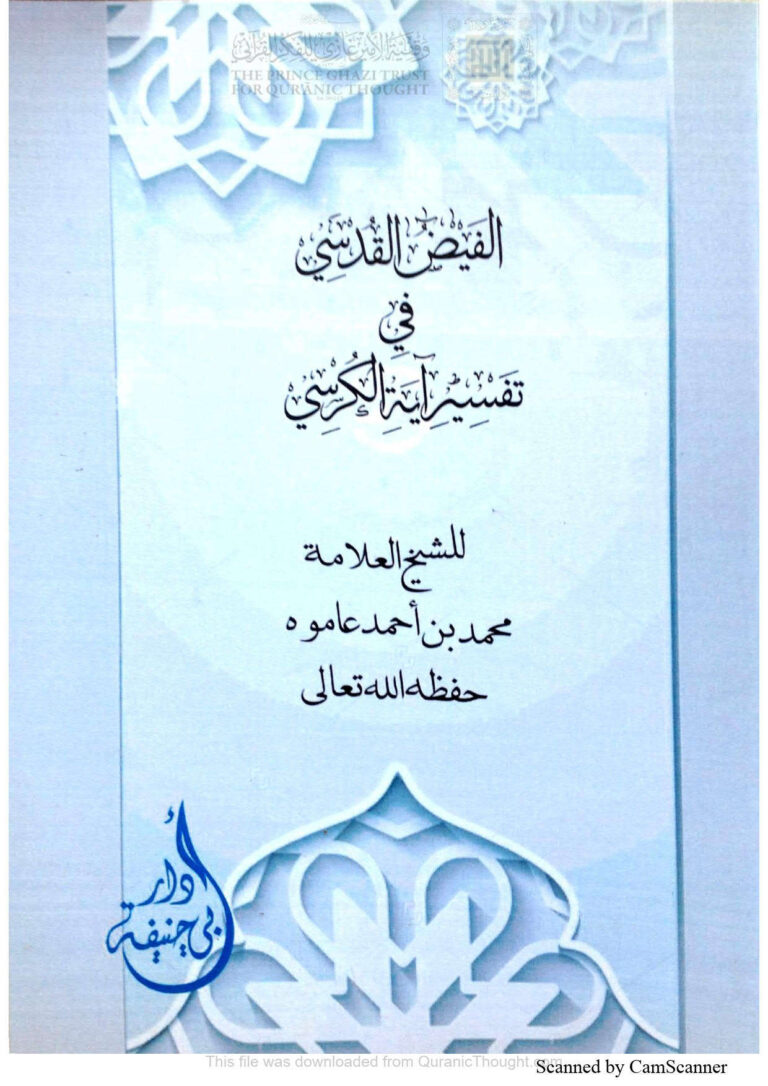 وقفية الأمير غازي للفكر القرآني
THE PRINCE GHAZI TRUST
FOR QUR'ANIC THOUGHT
الفَيْضُ القُدْسِي
فِي
تَفْسِيْرِ آيَةِ الكُرْسِي
للشيخ العلامة
محمد بن أحمد عاموه
حفظه الله تعالى
دار
أبي حنيفة
This file was downloaded from QuranicThought.com
Scanned by CamScanner